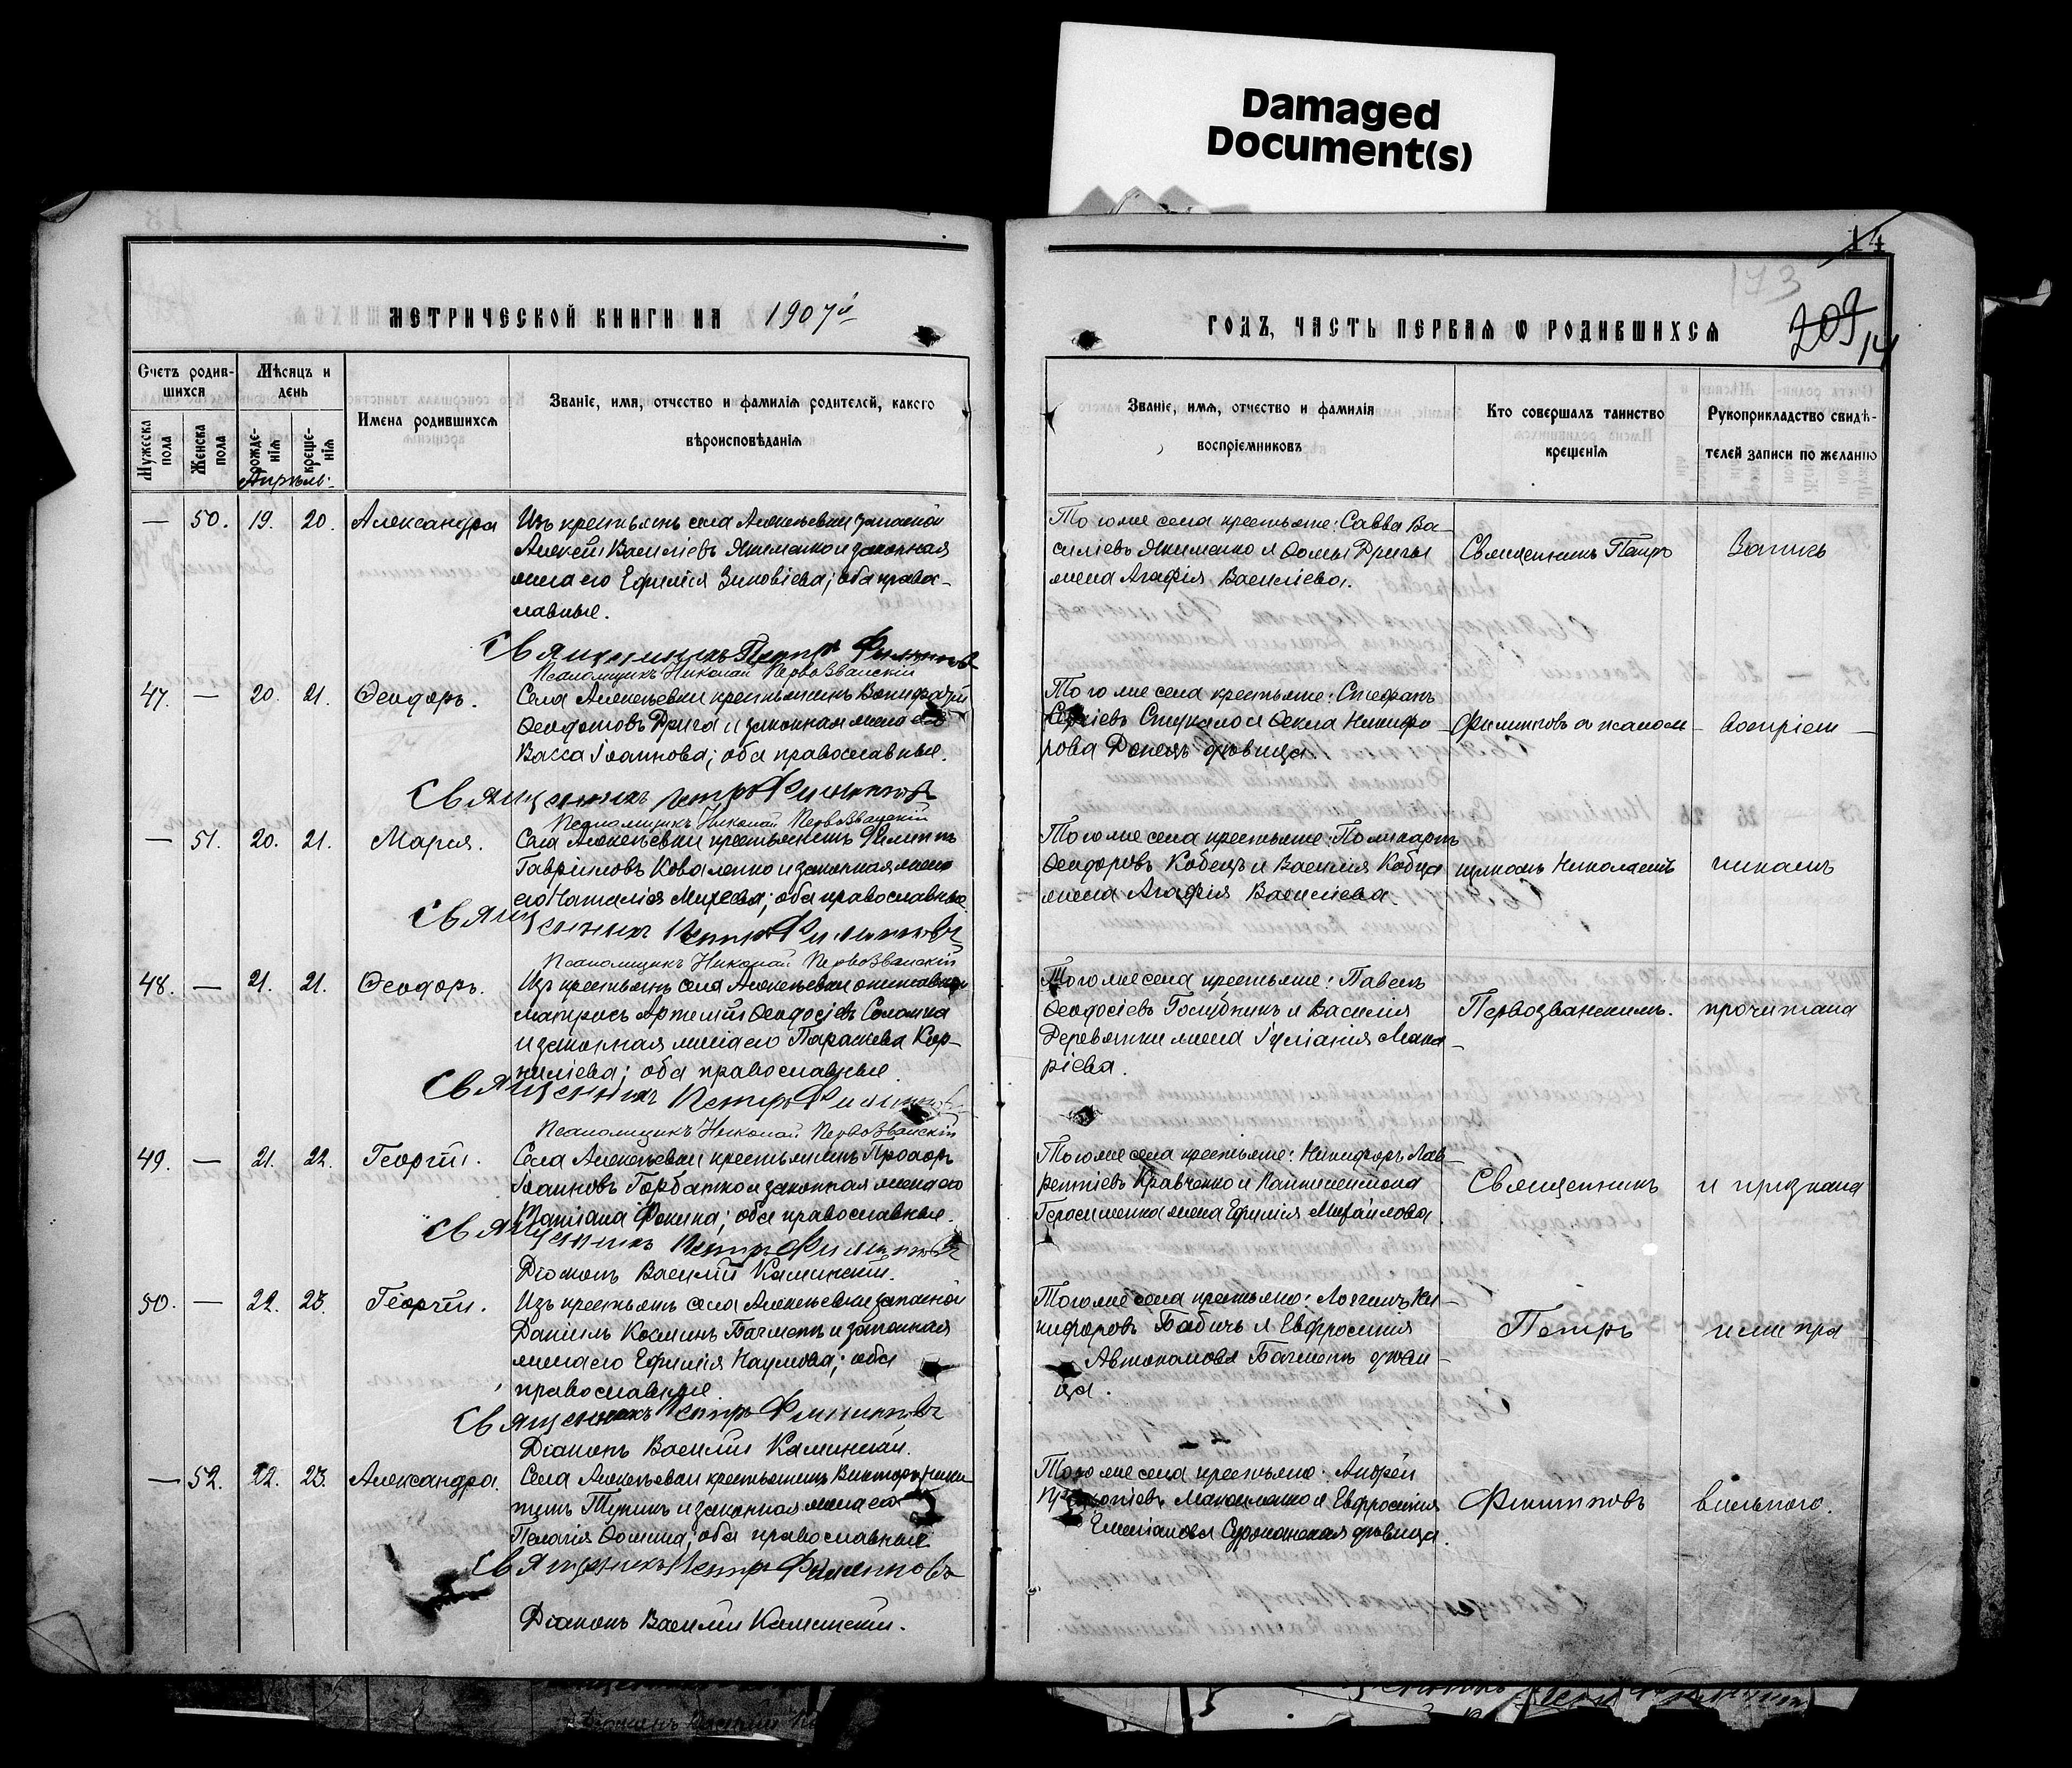 Damaged
Document(s)
14
173
209
14
МЕТРИЧЕСКОЙ КНИГИ НА 1907й
Счетъ родив-
шихся
Мѣсяцъ и
день
Имена родившихся
Званіе, имя, отчество и фамилія родителей, какого
вѣроисповѣданія
Мужеска
пола
Женска
пола
рожде-
нія
креще-
нія
Апрѣль
— 50. 19. 20. Александра
Изъ крестьянъ села Алексѣевки запасной
Алексѣй Василіевъ Якименко и законная
жена его Ефимія Зиновіева; оба право-
славные.
Священникъ Петръ Филипповъ
Псаломщикъ Николай Первозванскій
47. — 20. 21. Ѳеодоръ.
Села Алексѣевки крестьянинъ Вонифатій
Ѳеодотовъ Дрига и законная жена его
Васса Іоаннова; оба православные.
Священникъ Петръ Филипповъ
Псаломщикъ Николай Первозванскій
— 51. 20. 21. Марія.
Села Алексѣевки крестьянинъ Филиппъ
Гавріиловъ Коваленко и законная жена
его Наталія Михеева; оба православные.
Священникъ Петръ Филипповъ
Псаломщикъ Николай Первозванскій
48. — 21. 21. Ѳеодоръ.
Изъ крестьянъ села Алексѣевки
матросъ Артемій Ѳеодосіевъ Соломка
и законная жена его Параскева Кор-
ниліева; оба православные.
Священникъ Петръ Филипповъ
Псаломщикъ Николай Первозванскій
49. — 21. 22. Георгій.
Села Алексѣевки крестьянинъ Прохоръ
Іоанновъ Горбатко и законная жена его
Татіана Фокина; оба православные.
Священникъ Петръ Филипповъ
Діаконъ Василій Каминскій.
50. — 22. 23. Георгій.
Изъ крестьянъ села Алексѣевки запасной
Даніилъ Косминъ Багметъ и законная
жена его Ефимія Наумова; оба
православные.
Священникъ Петръ Филипповъ
Діаконъ Василій Каминскій.
— 52. 22. 23. Александра.
Села Алексѣевки крестьянинъ Викторъ Ники-
тинъ Тупикъ и законная жена его
Пелагія Ѳомина; оба православные.
Священникъ Петръ Филипповъ
Діаконъ Василій Каминскій.
ГОДЪ, ЧАСТЬ ПЕРВАЯ Ѡ РОДИВШИХСЯ
Званіе, имя, отчество и фамилія
воспріемниковъ
Кто совершалъ таинство
крещенія
Рукоприкладство свидѣ-
телей записи по желанію
Того же села крестьяне: Савва Ва-
силіевъ Якименко и Ѳомы Дриги
жена Агафія Василіева.
Священникъ Петръ
Запись
Того же села крестьяне: Стефанъ
Сергіевъ Стукало и Ѳекла Никифо-
рова Донецъ дѣвица.
Филипповъ съ псалом-
воспріем-
Того же села крестьяне: Поликарпъ
Ѳеодоровъ Кобецъ и Василія Кобца
жена Агафія Василіева.
щикомъ Николаемъ
никамъ
Того же села крестьяне: Павелъ
Ѳеодосіевъ Голубникъ и Василія
Деревянки жена Іуліанія Мака-
ріева.
Первозванскимъ.
прочитана
Того же села крестьяне: Никифоръ Лав-
рентіевъ Кравченко и Пантелеимона
Герасименка жена Ефимія Михайлова.
Священникъ
и признана
Того же села крестьяне: Логгинъ Ни-
кифоровъ Бабичъ и Евфросинія
Автономова Багметъ дѣви-
ца.
Петръ
ими пра
Того же села крестьяне: Андрей
Прокопіевъ Максименко и Евфросинія
Емиліанова Суржанская дѣвица.
Филипповъ
вильною.